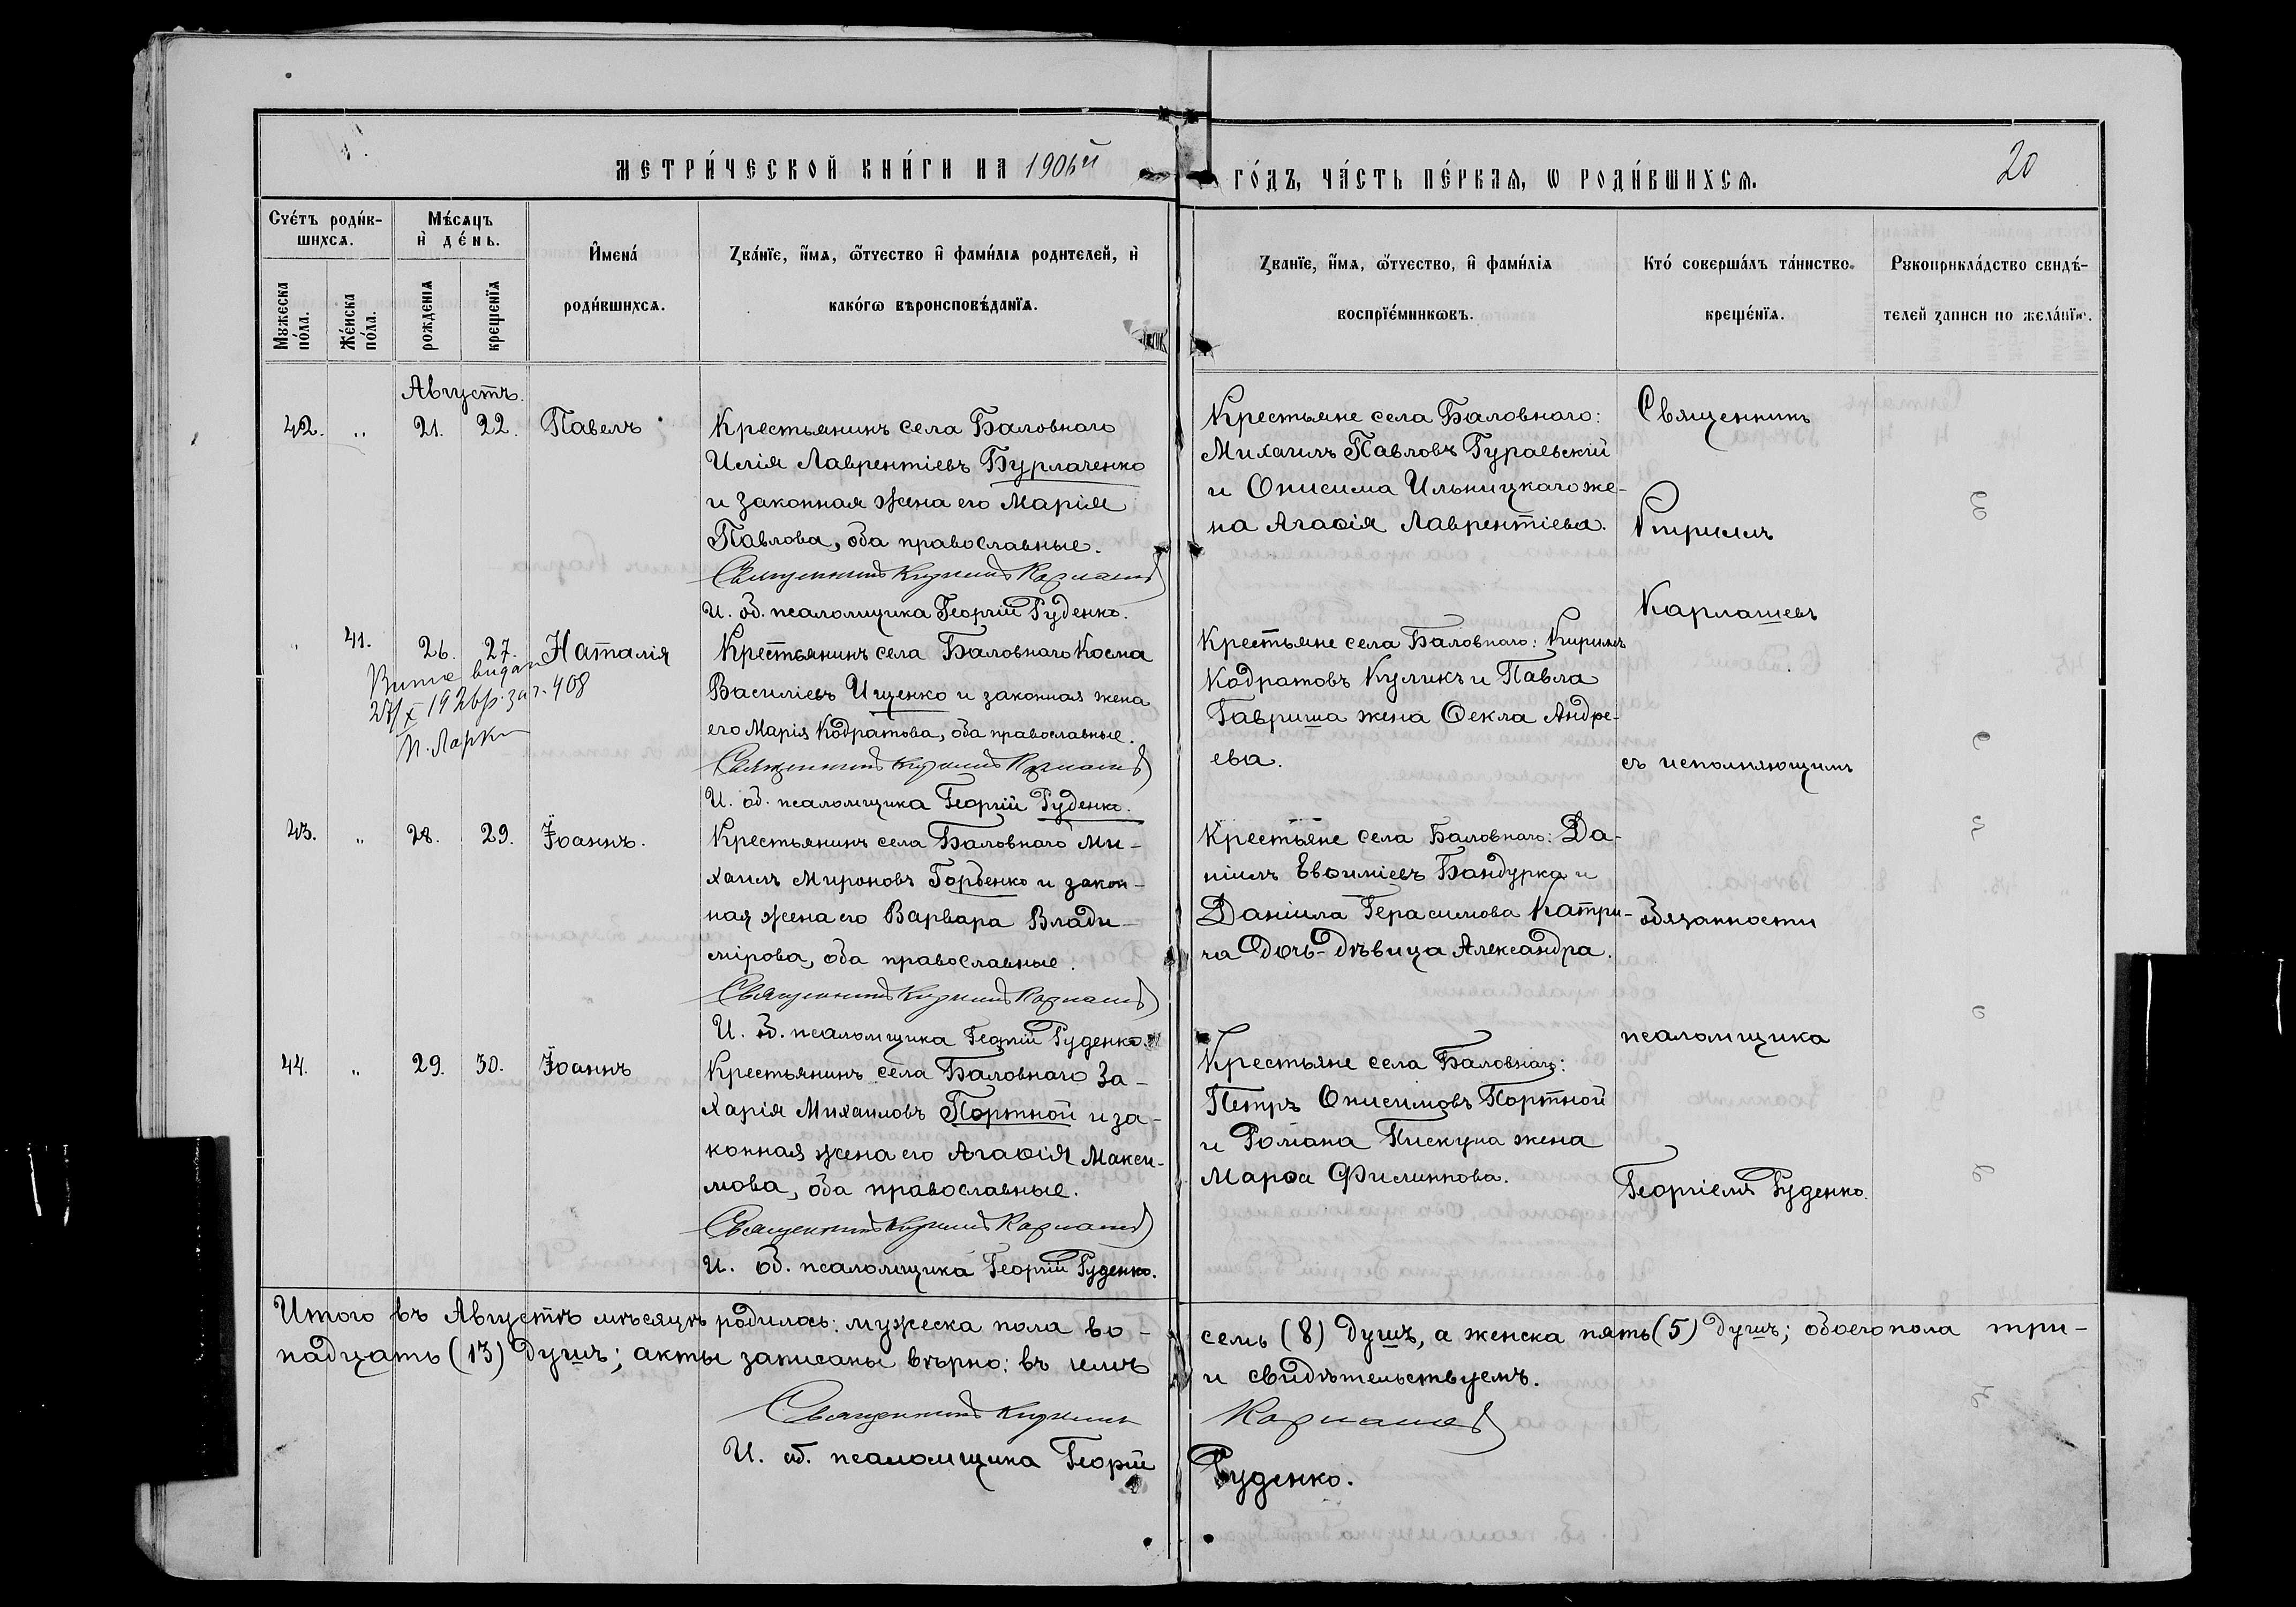 МЕТРИ́ЧЕСКОЙ КНИ́ГИ НА 1906й
ГО́ДЪ, ЧА́СТЬ ПЕ́РВАЯ, Ѡ РОДИ́ВШИХСѦ.
20
Сче́тъ роди́в-
шихсѧ.
Мѣ́сѧцъ
и де́нь.
Мꙋжеска
по́ла.
Же́нска
по́ла.
рожденїѧ
крещенїѧ
И҆мена́
роди́вшихсѧ.
Зва́нїе, и҆́мѧ, ѻ҆́тчество и҆ фами́лїѧ родителей, и҆
како́гѡ вѣроисповѣ́данїѧ.
Званїе, и҆́мѧ, ѻ҆́тчество, и҆ фами́лїѧ
воспрїе́мникѡвъ.
Кто́ соверша́лъ та́инство
креще́нїѧ.
Рꙋкоприкла́дство свидѣ́-
телей записи по жела́нїю.
Августъ.
42. „ 21. 22. Павелъ
Крестьянинъ села Баловнаго
Илія Лаврентіевъ Бурлаченко
и законная жена его Марія
Павлова, оба православные.
Священникъ Кириллъ Карпашевъ
И. об. псаломщика Георгій Руденко.
Крестьяне села Баловнаго:
Михаилъ Павловъ Гураевскій
и Онисима Ильницкаго же-
на Агаѳія Лаврентіева.
„ 41. 26. 27. Наталія
27/X 192 408
Крестьянинъ села Баловнаго Косма
Василіевъ Ищенко и законная жена
его Марія Кодратова, оба православные.
Священникъ Кириллъ Карпашевъ
И. об. псаломщика Георгій Руденко.
Крестьяне села Баловнаго: Кириллъ
Кодратовъ Куликъ и Павла
Гавриша жена Ѳекла Андре-
ева.
43. „ 28. 29. Іоаннъ.
Крестьянинъ села Баловнаго Ми-
хаилъ Мироновъ Горбенко и закон-
ная жена его Варвара Влади-
мірова, оба православные.
Священникъ Кириллъ Карпашевъ
И. об. псаломщика Георгій Руденко.
Крестьяне села Баловнаго: Да-
ніилъ Евѳиміевъ Бандурка и
Даніила Герасимова Катри-
ча дочь-дѣвица Александра.
44. „ 29. 30. Іоаннъ
Крестьянинъ села Баловнаго За-
харія Михаиловъ Портной и за-
конная жена его Агаѳія Макси-
мова, оба православные.
Священникъ Кириллъ Карпашевъ
И. об. псаломщика Георгій Руденко.
Крестьяне села Баловнаго:
Петръ Онисимовъ Портной
и Романа Пискуна жена
Марѳа Филиппова.
Священникъ
Кириллъ
Карпашевъ
съ исполняющимъ
обязанности
псаломщика
Георгіемъ Руденко.
Итого въ Августѣ мѣсяцѣ родилось: мужеска пола во-
семь (8) душъ, а женска пять (5) душъ; обоего пола три-
надцать (13) душъ; акты записаны вѣрно: въ чемъ
и свидѣтельствуемъ.
Священникъ Кириллъ
Карпашевъ
И. об. псаломщика Георгій
Руденко.